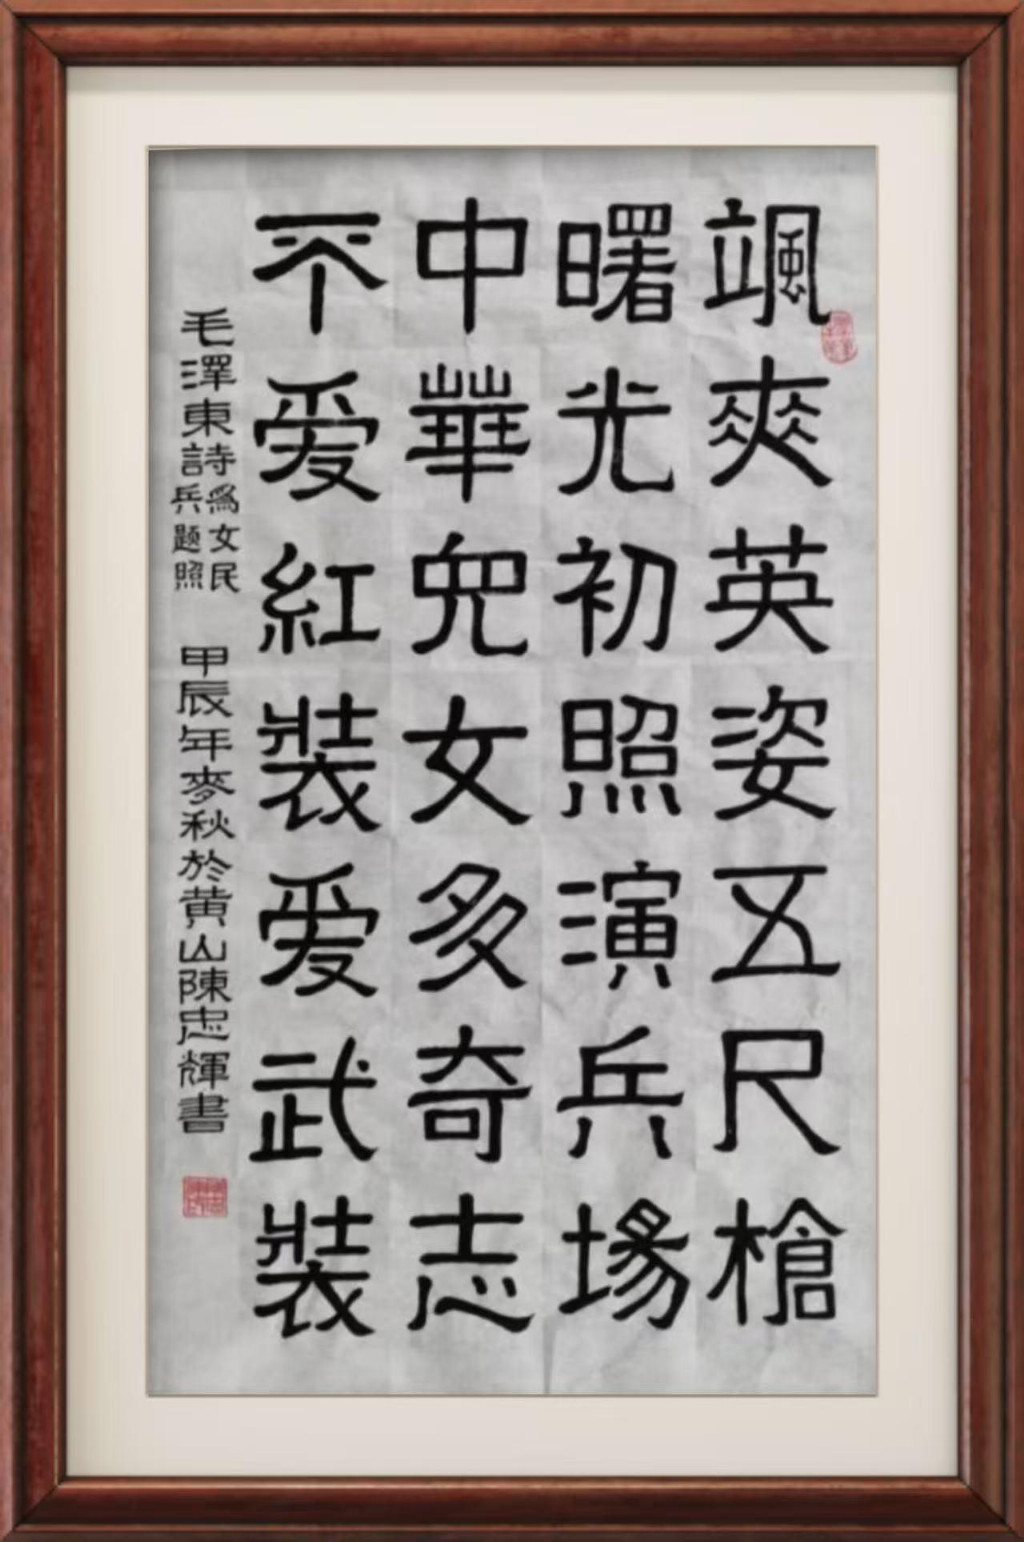 颯爽英姿五尺槍
曙光初照演兵場
中華兒女多奇志
不爱紅裝爱武裝
毛澤東詩為女民兵题照 甲辰年麥秋於黄山陳忠輝書